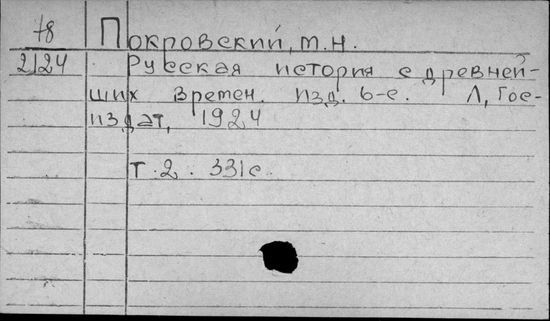 78 Покровский, М.Н.
2124 Русская история с древней-
ших времен. Изд. 6-е. Л, Гос-
издат, 1924
Т. 2. 331с.